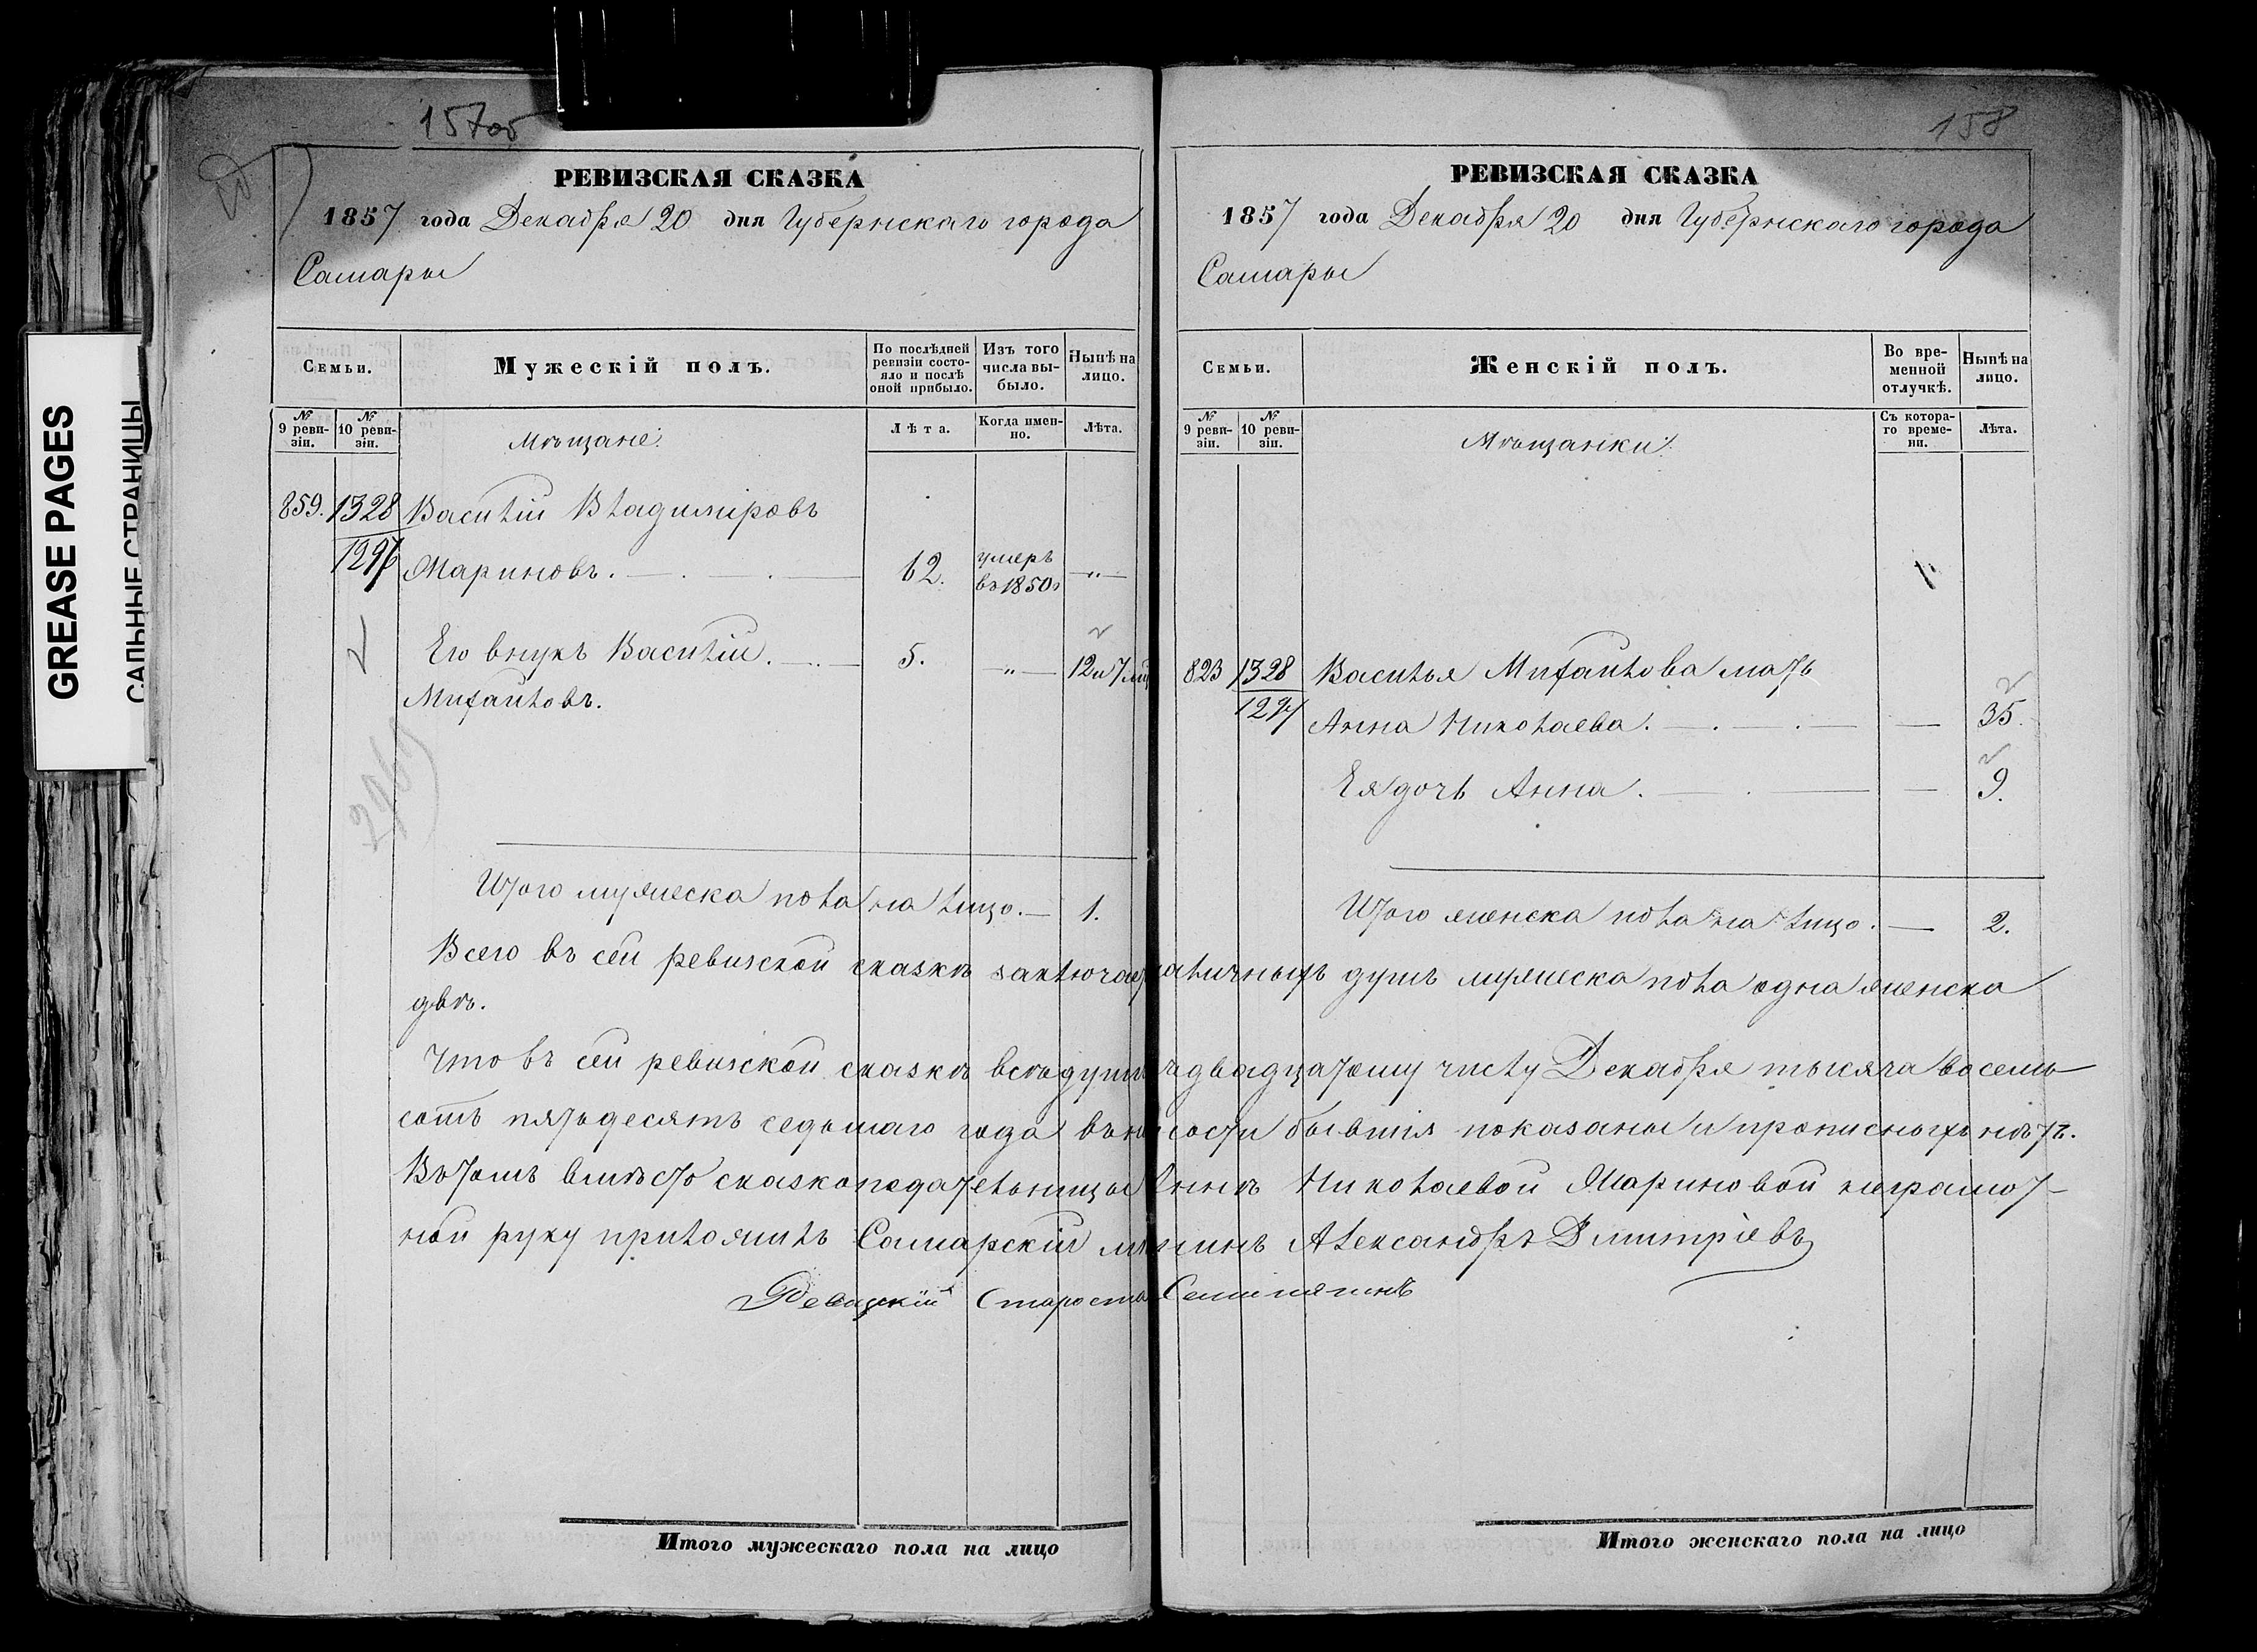 GREASE PAGES
САЛЬНЫЕ СТРАНИЦЫ
157об
РЕВИЗСКАЯ СКАЗКА
1857 года Декабря 20 дня Губернскаго города
Самары
Семьи.
Мужескій полъ.
По послѣдней ревизіи состояло и послѣ оной прибыло.
Изъ того числа выбыло.
Нынѣ на лицо.
№ 9 ревизіи.
№ 10 ревизіи.
Мѣщане:
Лѣта.
Когда именно.
Лѣта.
859. 1328 Василій Владиміровъ
1297 Мариновъ. 62. умеръ въ 1850 г — " —
Его внукъ Василій. 5. — " — 12 и 7 мѣ
Михайловъ.
Итого мужеска пола на лицо. — 1.
158
РЕВИЗСКАЯ СКАЗКА
1857 года Декабря 20 дня Губернскаго города
Самары
Семьи.
Женскій полъ.
Во временной отлучкѣ.
Нынѣ на лицо.
№ 9 ревизіи.
№ 10 ревизіи.
Мѣщанки:
Съ котораго времени.
Лѣта.
823 1328 Василья Михайлова мать
1297 Анна Николаева. — 35.
Ея дочь Анна. — 9.
Итого женска пола на лицо. — 2.
Всего въ сей ревизской сказкѣ заключае наличныхъ душъ мужеска пола одна женска
двѣ.
Что въ сей ревизской сказкѣ всѣ души къ двадцатому числу Декабря тысяча восемь
сотъ пятьдесятъ седьмаго года въ на ости бывшія показаны и прописныхъ нѣтъ.
Въ томъ вмѣсто сказкоподательницы Аннѣ Николаевой Мариновой неграмот-
ной руку приложилъ Самарскій мѣ нинъ Александръ Дмитріевъ
Ревизскій Староста
Итого мужескаго пола на лицо
Итого женскаго пола на лицо